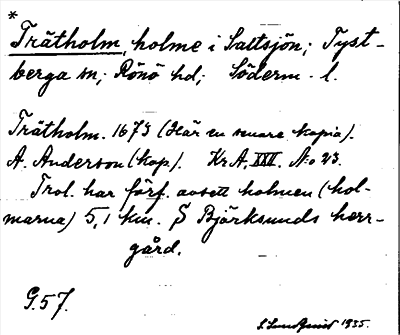 *
Trätholm, holme i Saltsjön; Tyst-
berga sn; Rönö hd; Söderm. l.
Trätholm. 1673 (Här en senare kopia).
A. Anderson (kop). Kr. A. XXI. No 23.
Trol. har förf. avsett holmen (hol-
marna) 5,1 km. S Björksunds herr-
gård.
G. 57.
S. Lundqvist 1935.